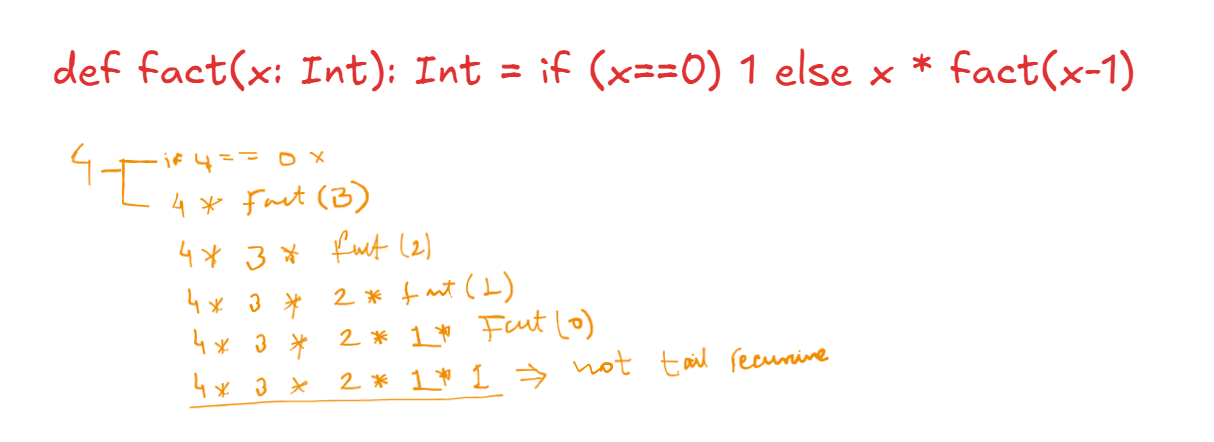 def fact(x: Int): Int = if (x==0) 1 else x * fact(x-1)
4 if 4 == 0 x
4 * Fact (3)
4 * 3 * fact (2)
4 * 3 * 2 * fact (1)
4 * 3 * 2 * 1 * Fact (0)
4 * 3 * 2 * 1 * 1 ⇒ not tail recursive